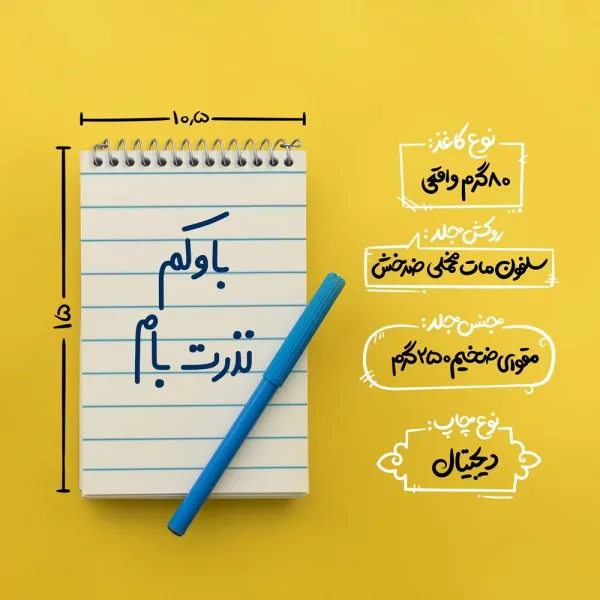 ۱۰,۵
۱۵
باوکم
نذرت بام
نوع کاغذ:
۸۰گرم واقعی
روکش مجلد:
سلفون مات مخملی ضدخش
جنس مجلد:
مقوای ضخیم ۲۵۰گرم
نوع چاپ:
دیجیتال